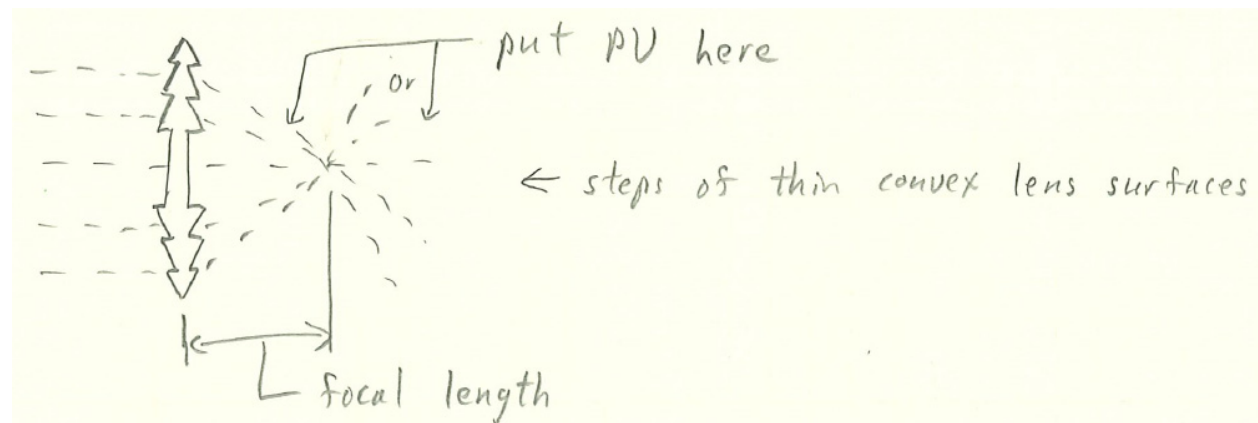 put PV here
or
← steps of thin convex lens surfaces
focal length